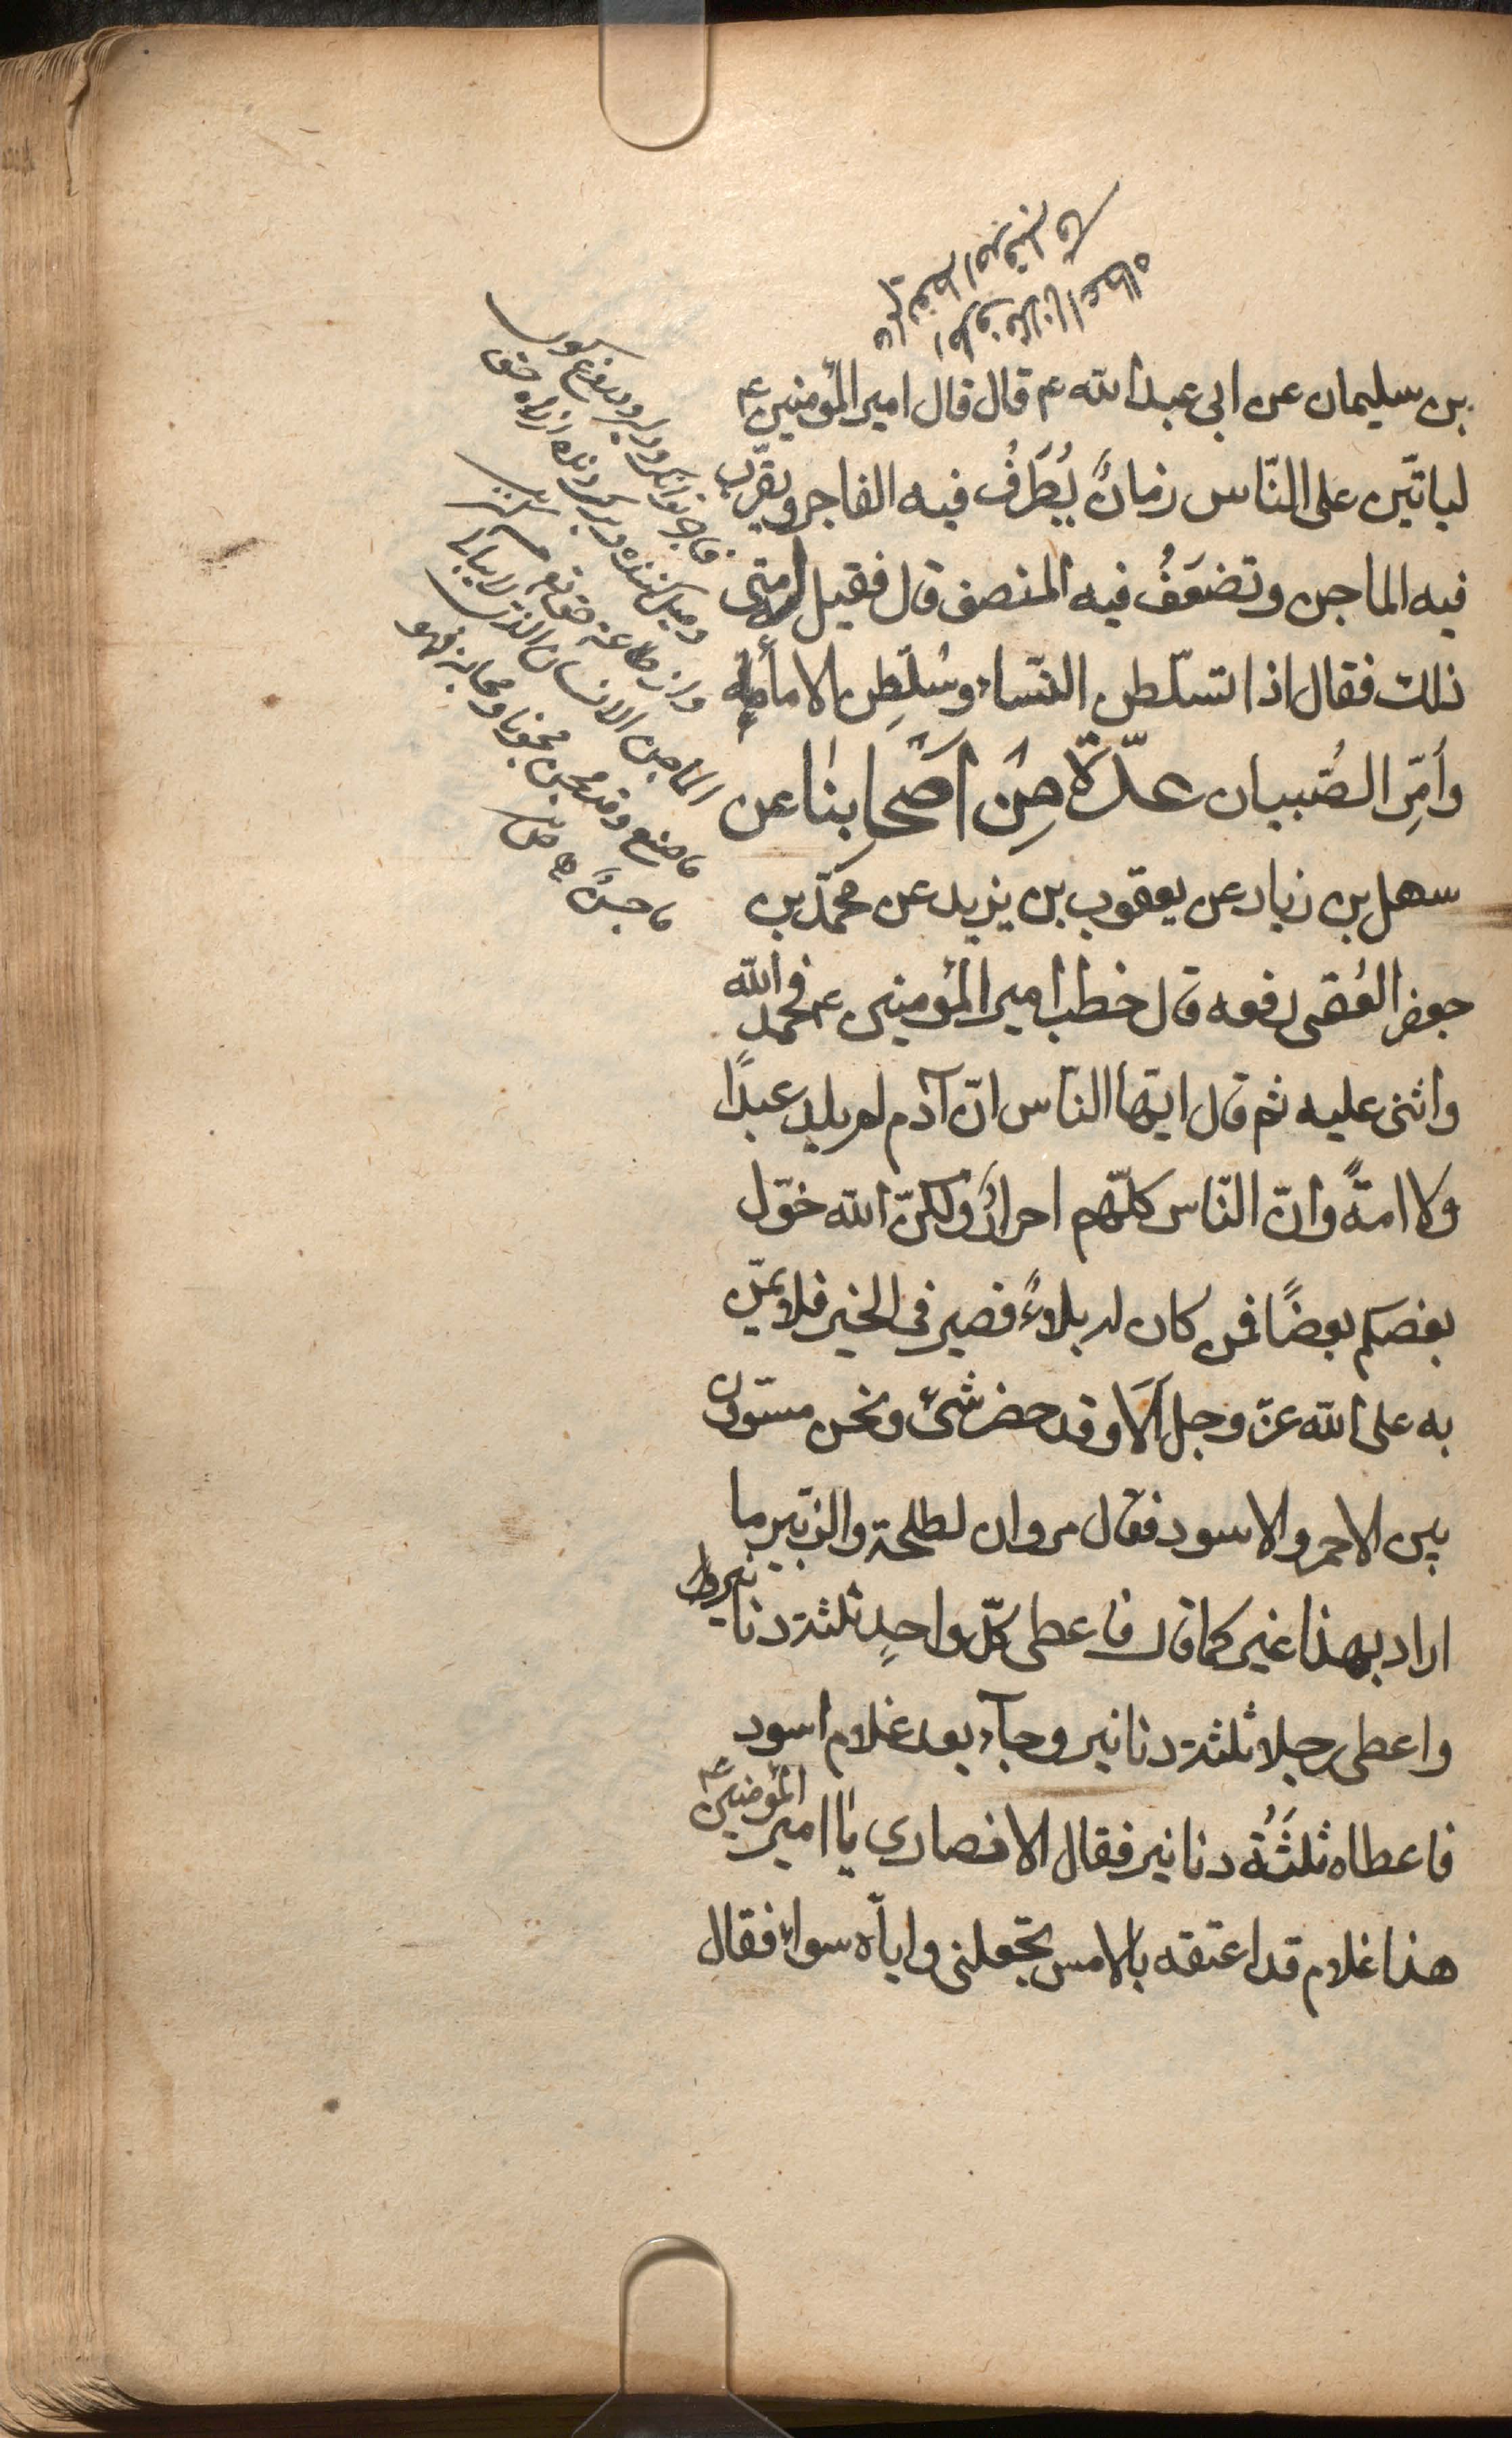 بن سليمان عن ابى عبد الله ع قال قال امير المؤمنين ع
لياتين على النّاس زمانٌ يُطرَفُ فيه الفاجر ويقرّب
فيه الماجن وتضعَفُ فيه المنصف قال فقيل له متى
ذلك فقال اذا تسلّطن النّساء وسُلّطِن الاماء
وأمِّر الصّبيان عدّة مِن اصحابنا عن
سهل بن زياد عن يعقوب بن يزيد عن محمّد بن
جعفر العُقبى رفعه قال خطب امير المؤمنين ع فحمد الله
واثنى عليه ثم قال ايّها الناس انّ آدم لم يلد عبدًا
ولا امةً وانّ النّاس كلّهم احرارٌ ولكنّ الله خوّل
بعضكم بعضًا فمن كان له بلاءٌ فصبر فى الخير فلا يمنّ
به على الله عزّ وجل ألا وقد حضر شئ ونحن مستوون
بين الاحمر والاسود فقال مروان لطلحة والزبير ما
اراد بهذا غيركما قال فاعطى كلّ واحدٍ ثلثة دنانير
واعطى رجلا ثلثة دنانير وجآء بعد غلام اسود
فاعطاه ثلثَةُ دنانير فقال الانصارى يا امير المؤمنين ع
هذا غلام قد اعتقه بالامس تجعلنى واياّه سواء فقال
الماجن الانسان الذى لا يبالى
ما صنع وقد مجن مجونا ومجانة فهو
ماجنٌ